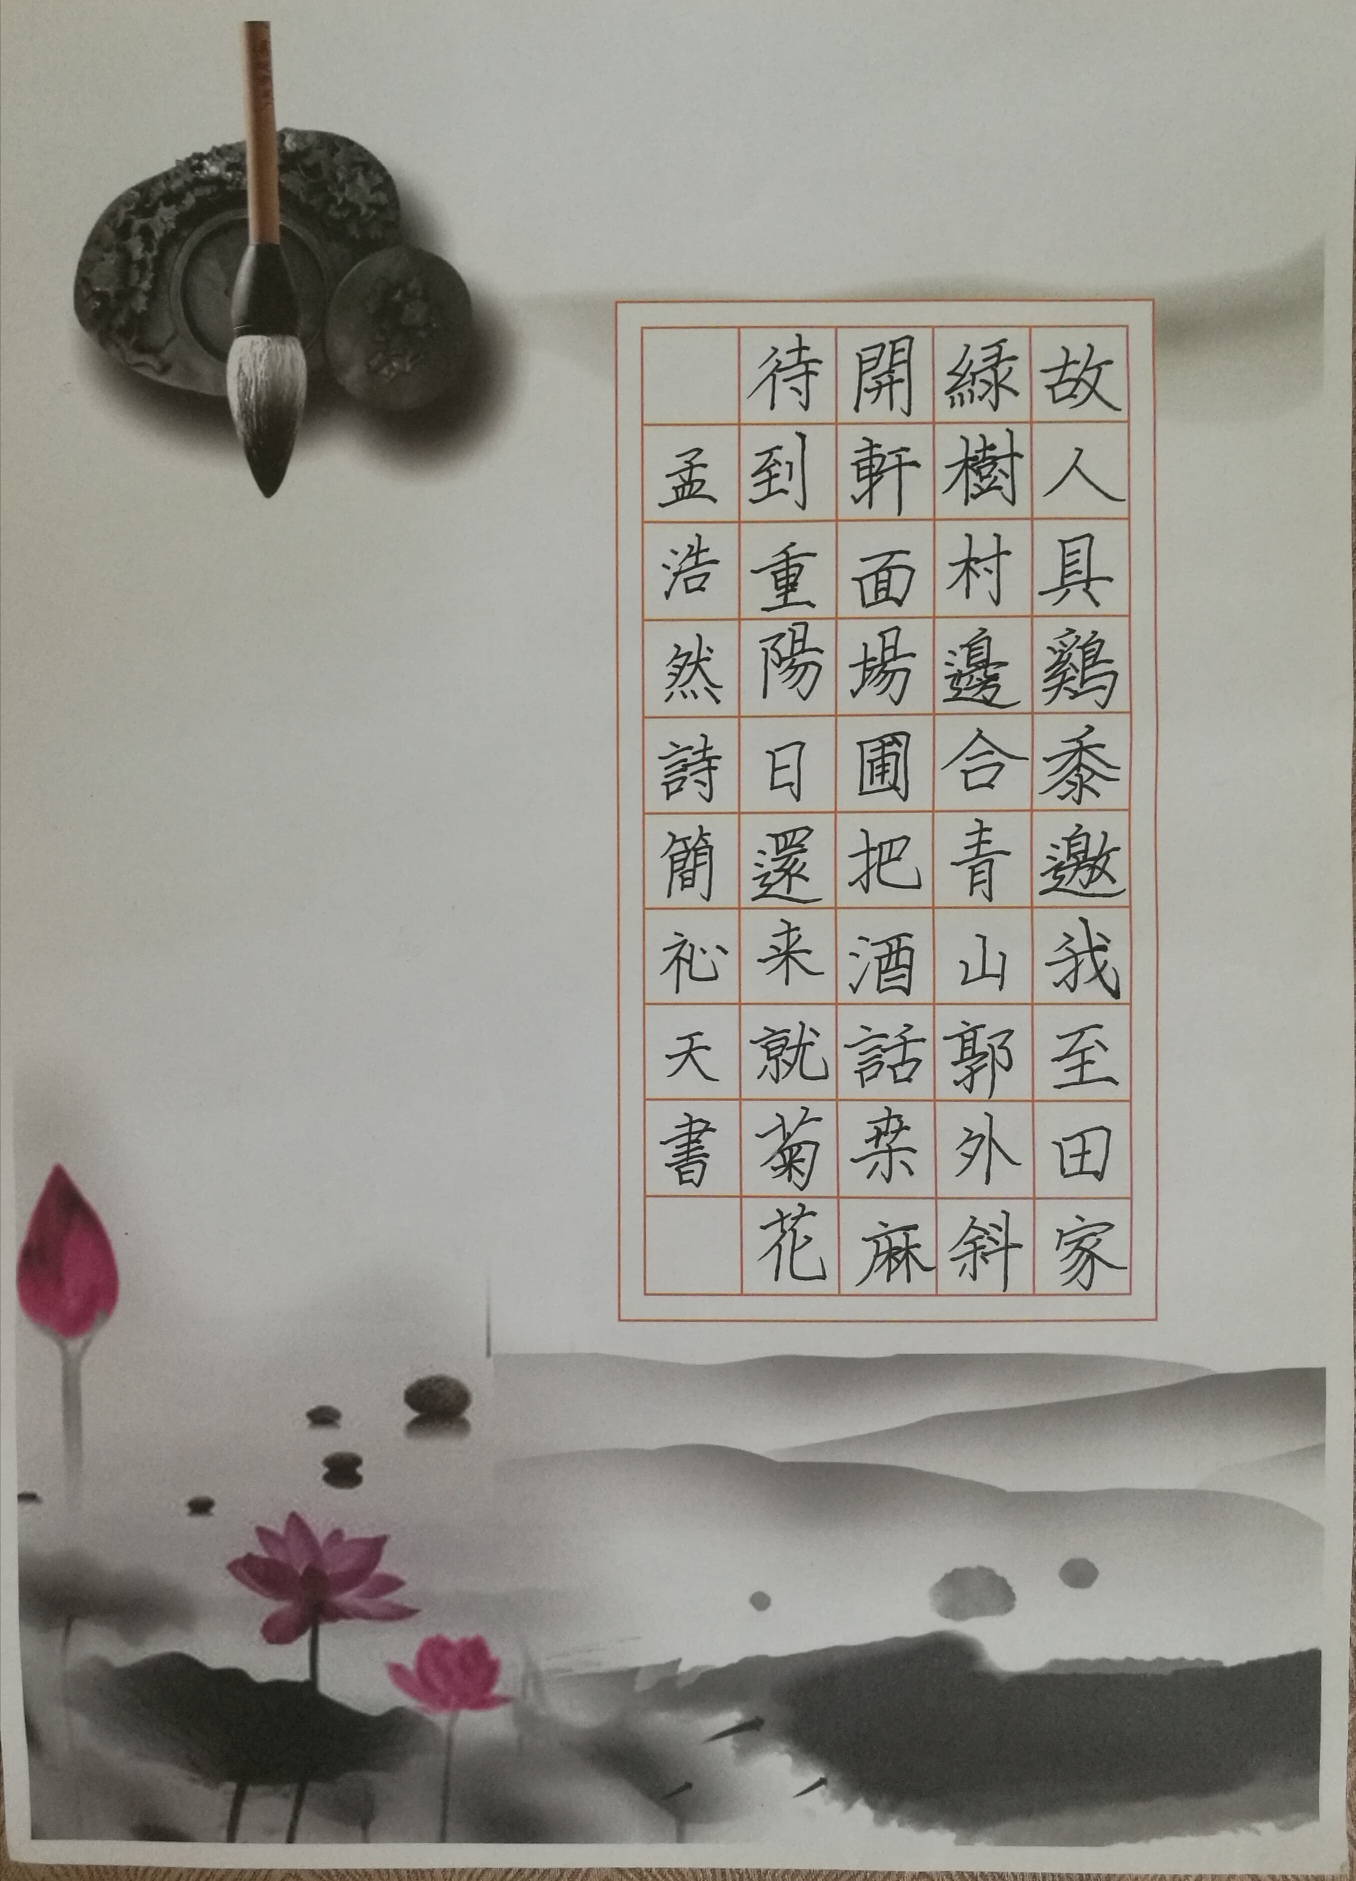 故人具鷄黍邀我至田家
緑樹村邊合青山郭外斜
開軒面場圃把酒話桒麻
待到重陽日還来就菊花
孟浩然詩簡祕天書